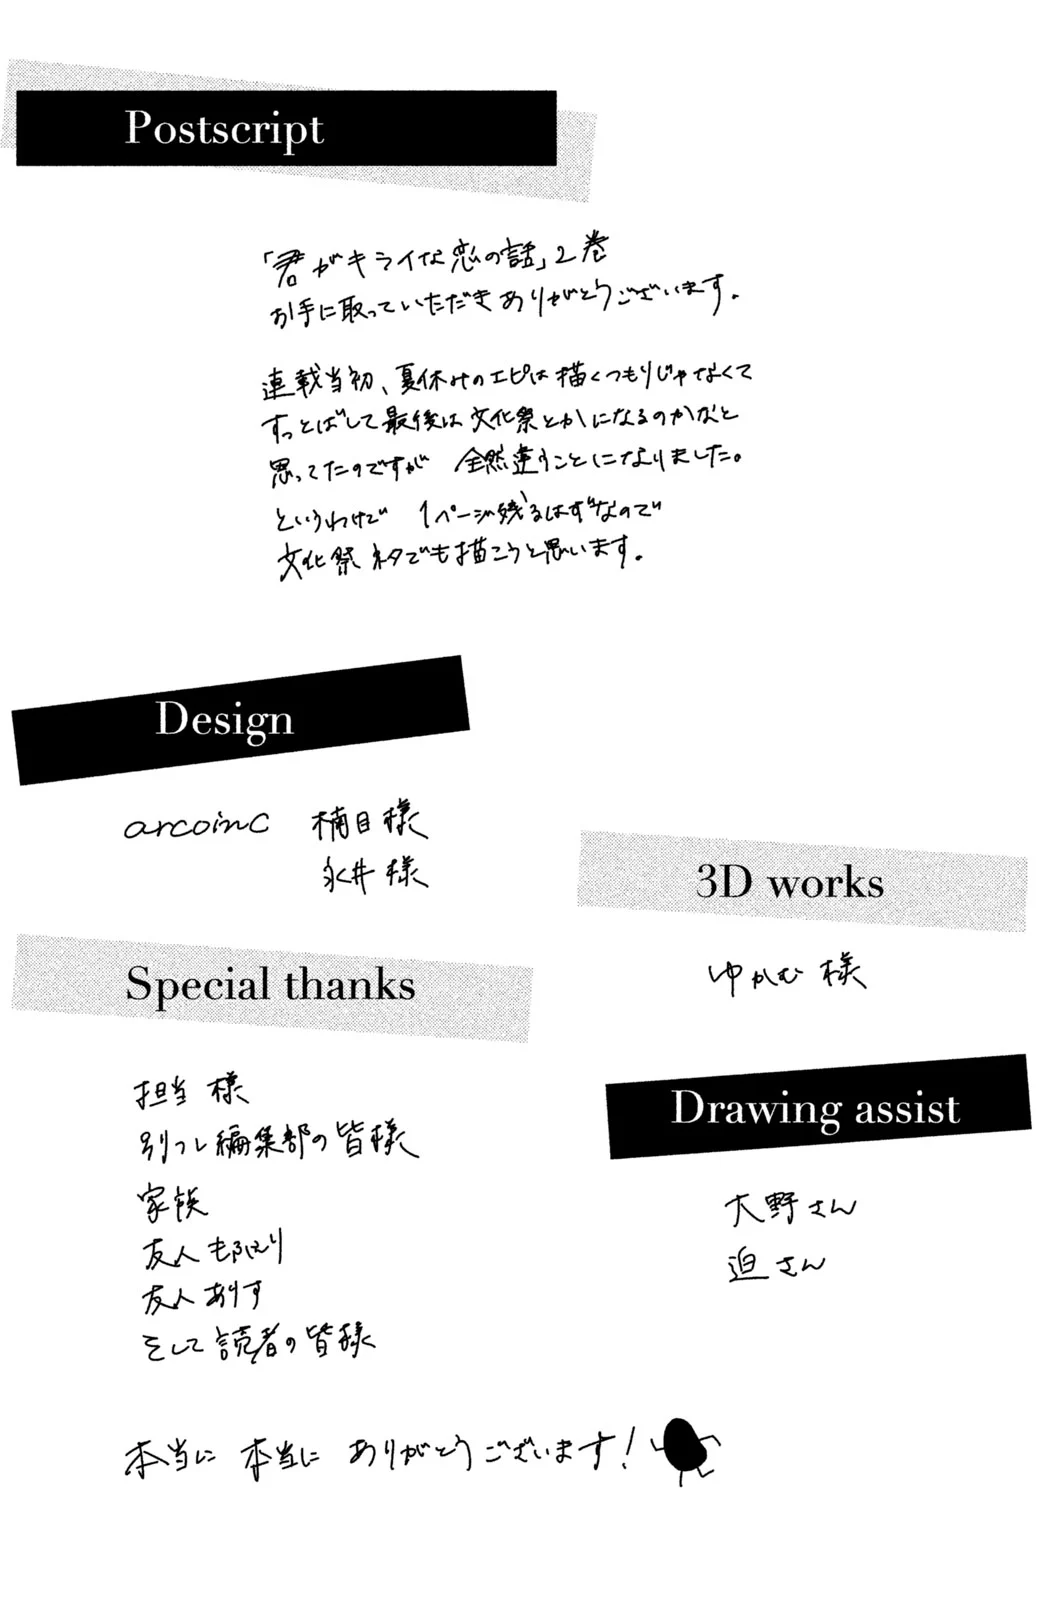 Postscript
「君がキライな恋の話」2巻
お手に取っていただきありがとうございます。
連載当初、夏休みのエピは描くつもりじゃなくて
すっとばして最後は文化祭とかになるのかなと
思ってたのですが 全然違うことになりました。
というわけで 1ページ残るはずなので
文化祭ネタでも描こうと思います。
Design
arcoinc 楠目様
永井様
3D works
ゆかむ様
Special thanks
担当様
別フレ編集部の皆様
家族
友人
友人ありす
そして読者の皆様
Drawing assist
大野さん
迫さん
本当に 本当に ありがとうございます!